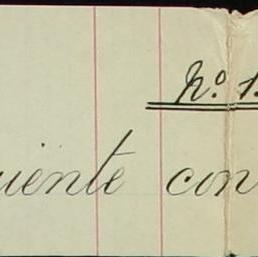 No. 1.
uiente con